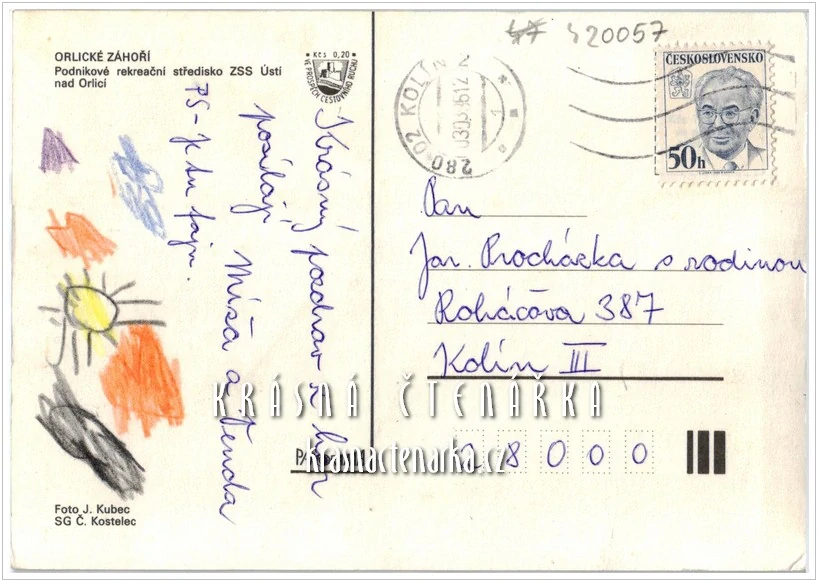 47 420057
ORLICKÉ ZÁHOŘÍ
Podnikové rekreační středisko ZSS Ústí
nad Orlicí
Kčs 0,20
VE PROSPĚCH CESTOVNÍHO RUCHU
280 02 KOLÍN 2
1
ČESKOSLOVENSKO
50h
Krásný pozdrav z hor
posílají Míša a Venda
PS - Je tu fajn.
Pan
Jar. Procházka s rodinou
Roháčova 387
Kolín III
28000
KRÁSNÁ ČTENÁŘKA
krasnactenarka.cz
Foto J. Kubec
SG Č. Kostelec